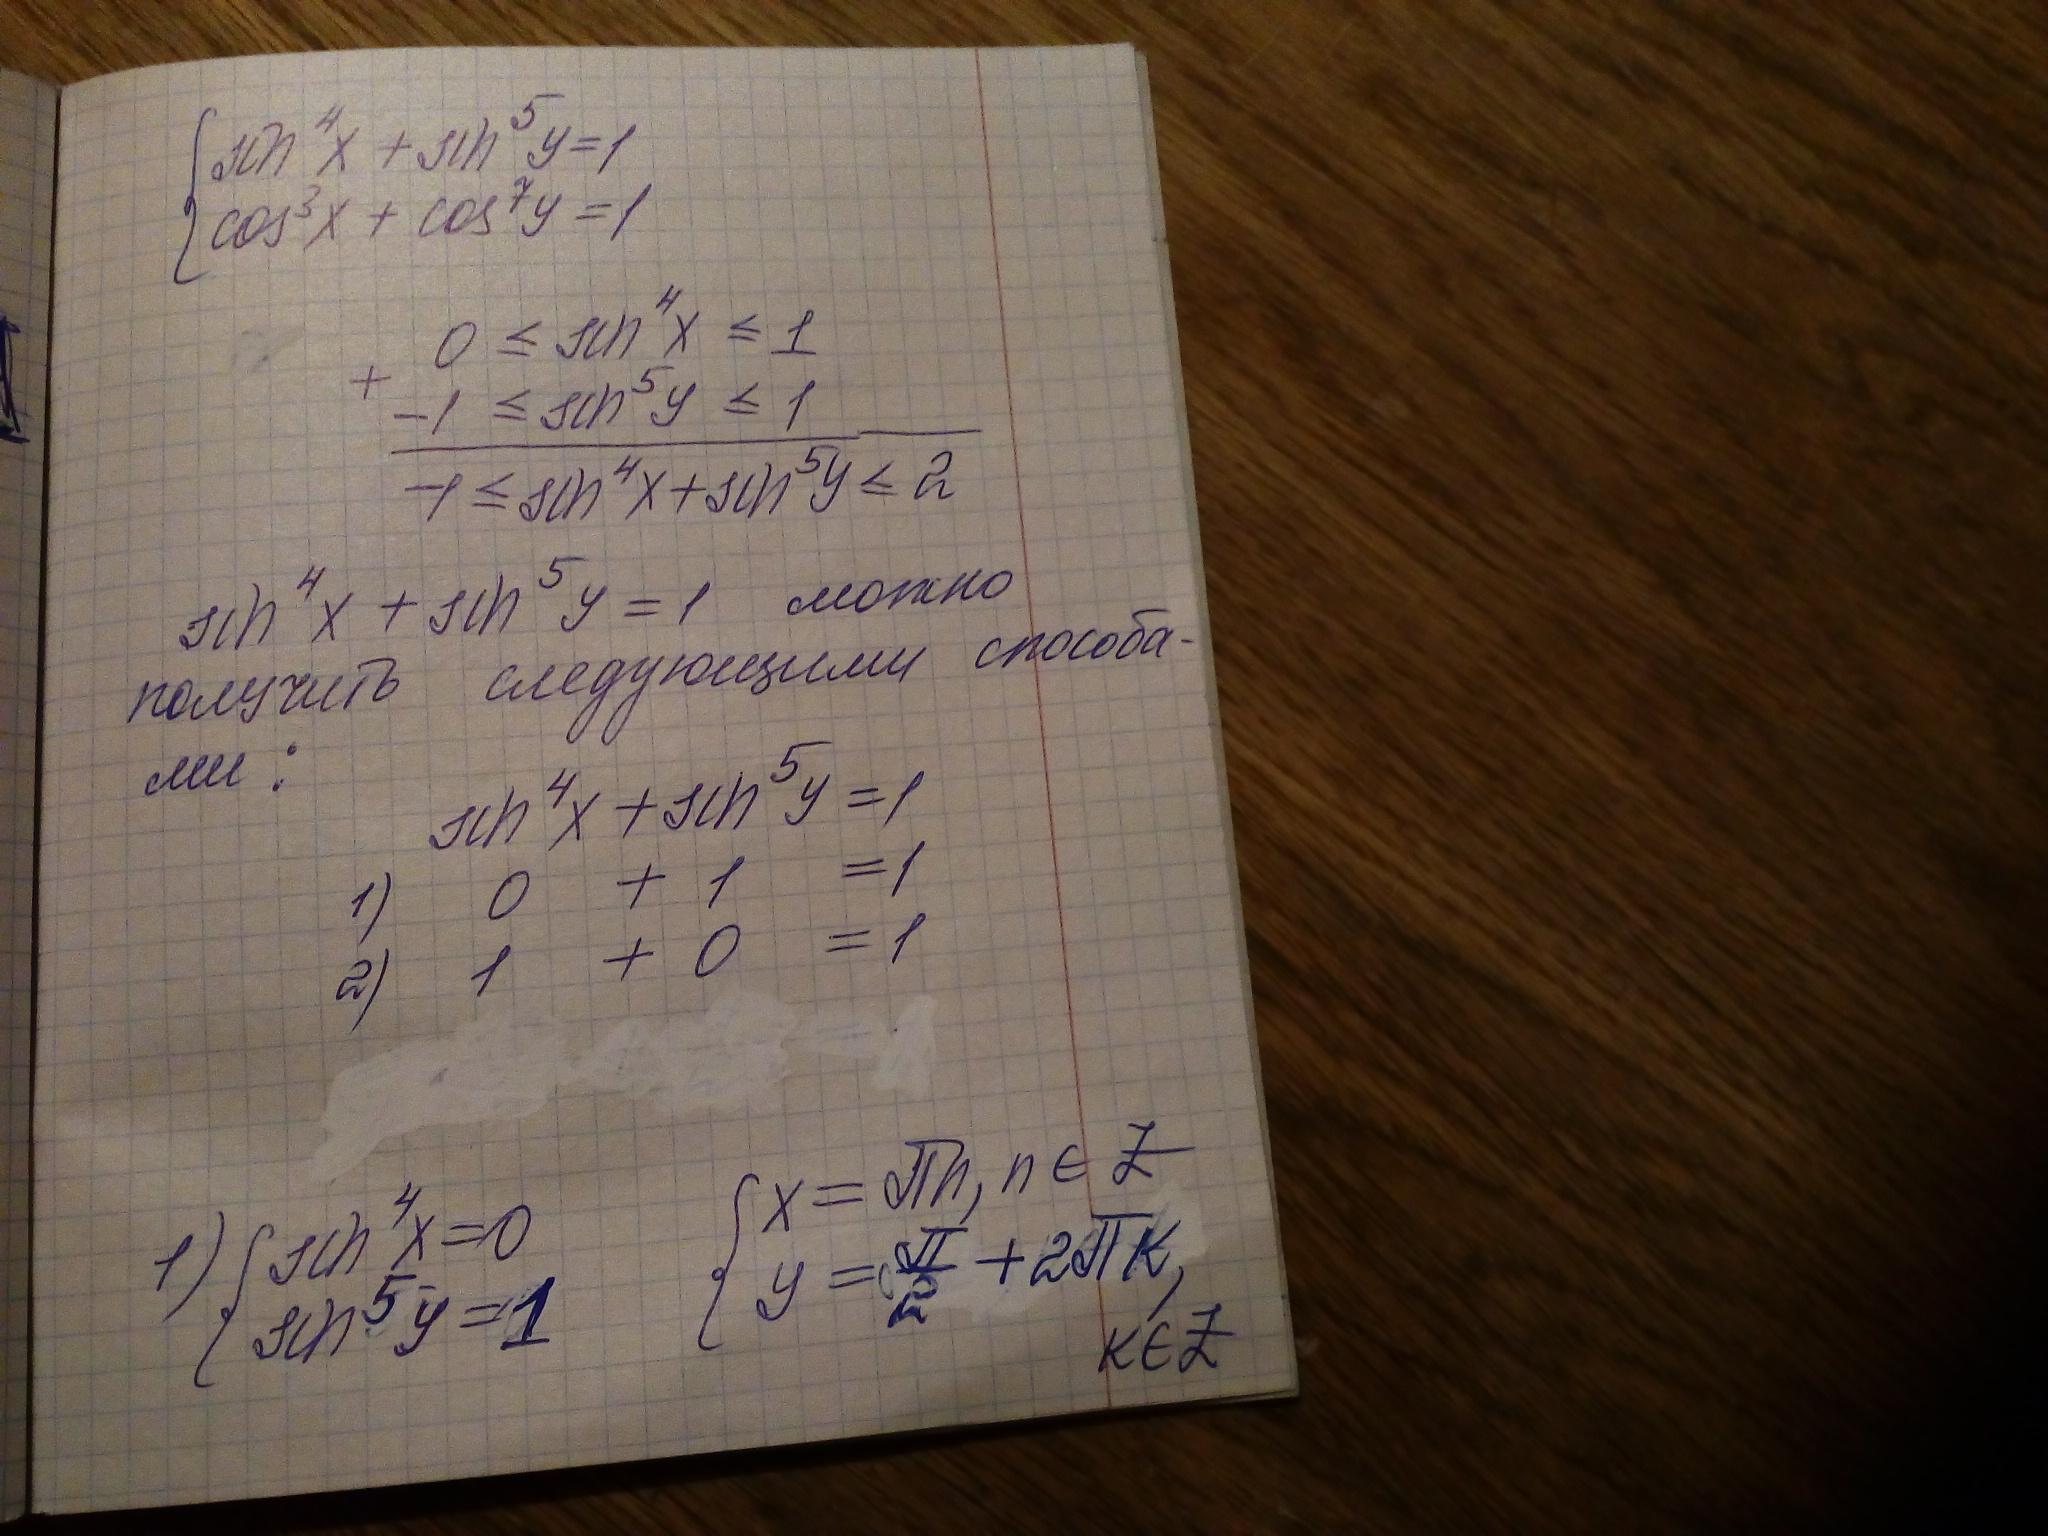 sin⁴x + sin⁵y = 1
cos³x + cos⁷y = 1
0 ≤ sin⁴x ≤ 1
+
-1 ≤ sin⁵y ≤ 1
-1 ≤ sin⁴x + sin⁵y ≤ 2
sin⁴x + sin⁵y = 1 можно
получить следующими способа-
ми:
sin⁴x + sin⁵y = 1
1) 0 + 1 = 1
2) 1 + 0 = 1
1) { sin⁴x = 0 { x = πn, n ∈ Z
sin⁵y = 1 y = π/2 + 2πк,
к ∈ Z